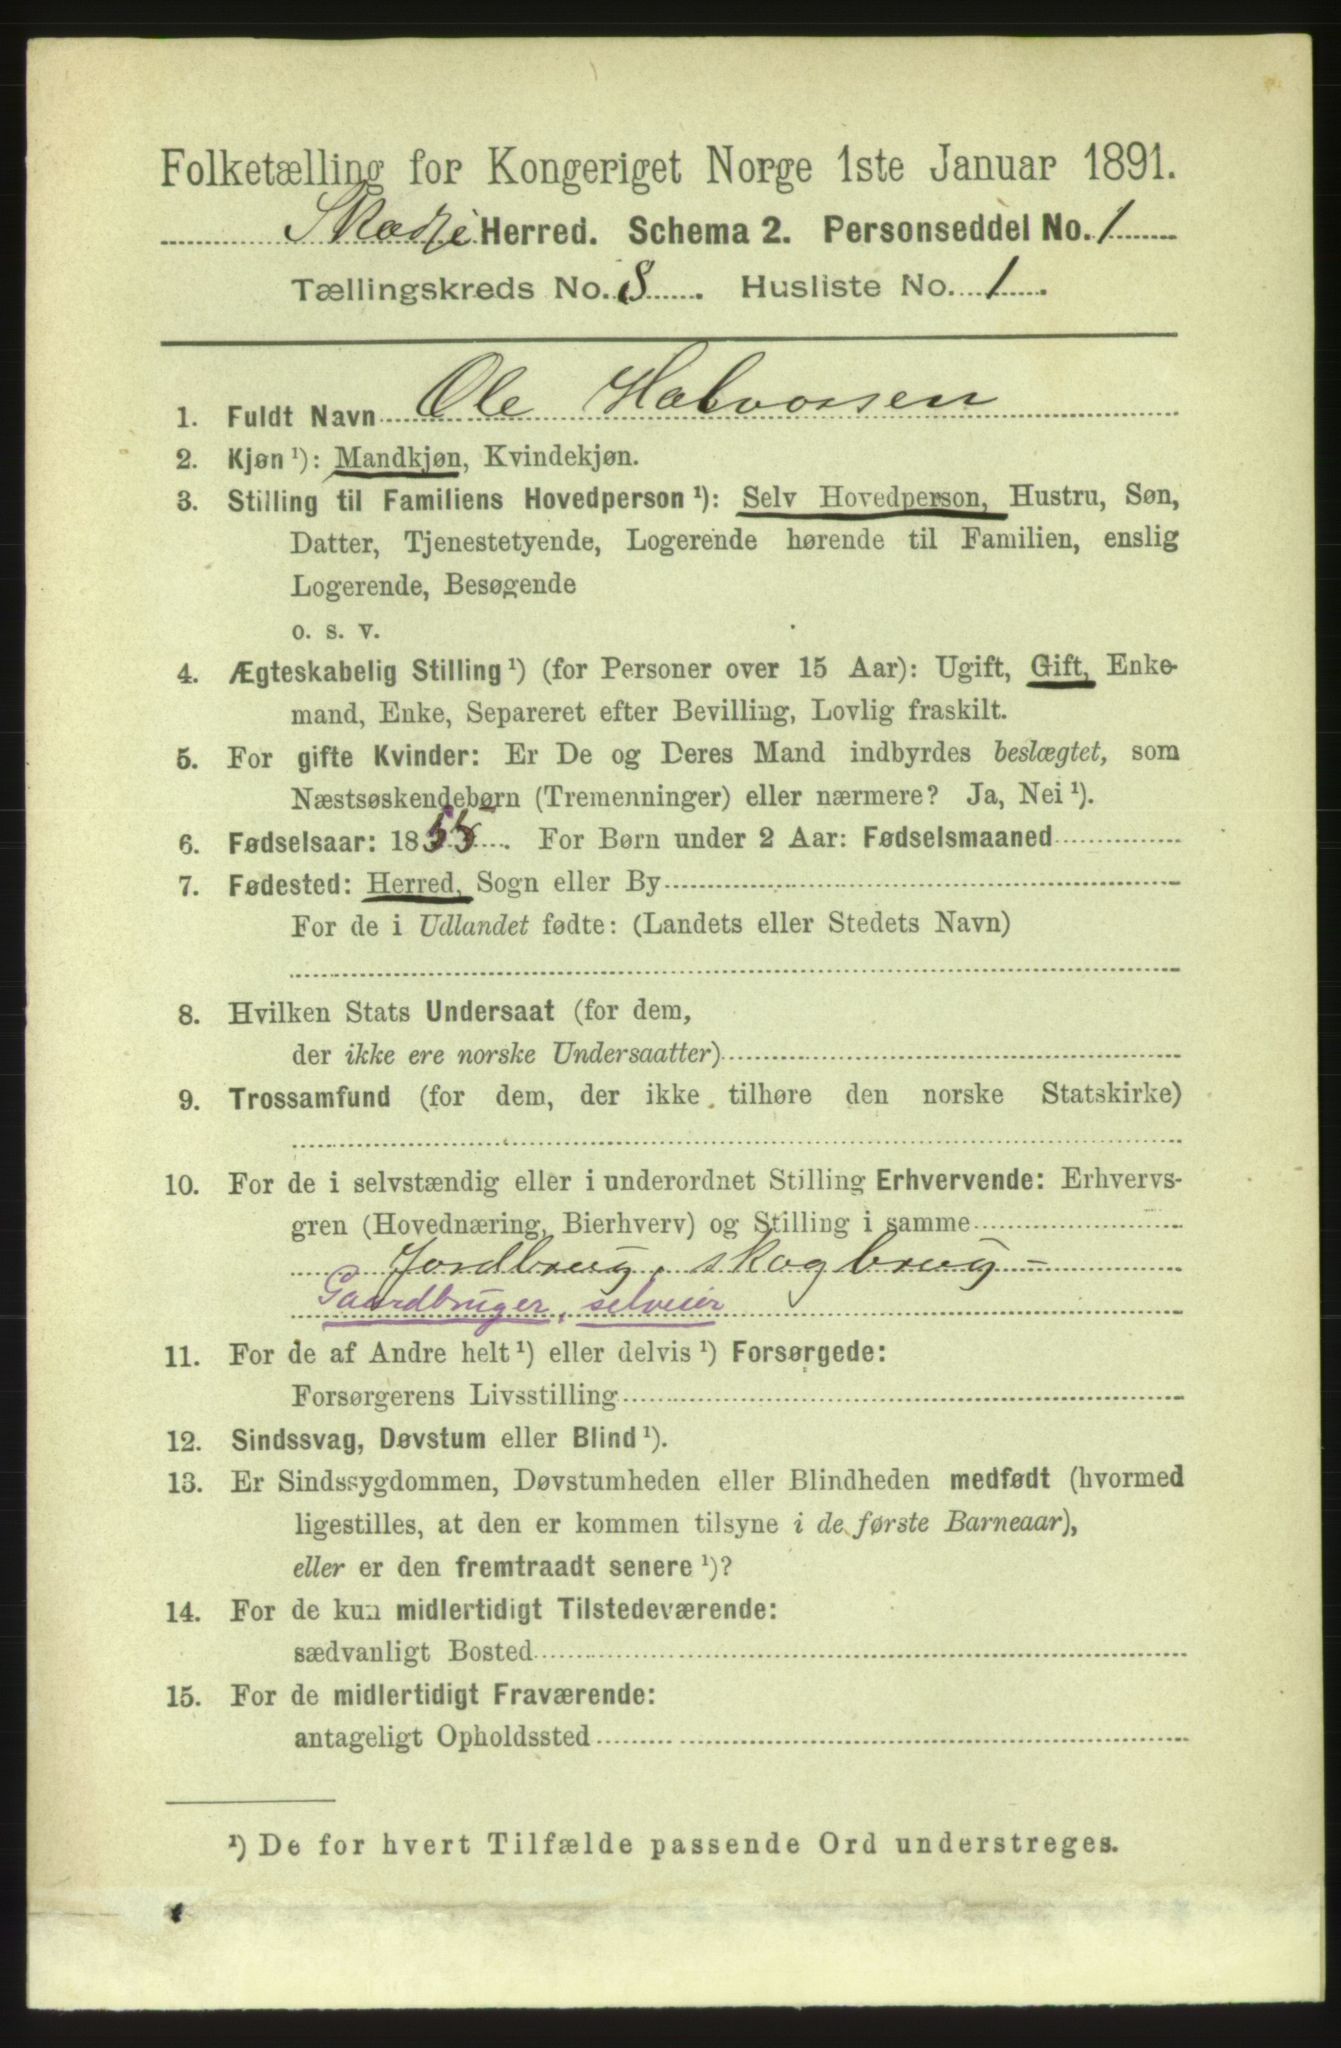 Folketælling for Kongeriget Norge 1ste Januar 1891.
Skodje Herred. Schema 2. Personseddel No. 1
Tællingskreds No. 8. Husliste No. 1.
1. Fuldt Navn Ole Halvorsen
2. Kjøn ¹): Mandkjøn, Kvindekjøn.
3. Stilling til Familiens Hovedperson ¹): Selv Hovedperson, Hustru, Søn,
Datter, Tjenestetyende, Logerende hørende til Familien, enslig
Logerende, Besøgende
o. s. v.
4. Ægteskabelig Stilling ¹) (for Personer over 15 Aar): Ugift, Gift, Enke-
mand, Enke, Separeret efter Bevilling, Lovlig fraskilt.
5. For gifte Kvinder: Er De og Deres Mand indbyrdes beslægtet, som
Næstsøskendebørn (Tremenninger) eller nærmere? Ja, Nei ¹).
6. Fødselsaar: 1855. For Børn under 2 Aar: Fødselsmaaned
7. Fødested: Herred, Sogn eller By
For de i Udlandet fødte: (Landets eller Stedets Navn)
8. Hvilken Stats Undersaat (for dem,
der ikke ere norske Undersaatter)
9. Trossamfund (for dem, der ikke tilhøre den norske Statskirke)
10. For de i selvstændig eller i underordnet Stilling Erhvervende: Erhvervs-
gren (Hovednæring, Bierhverv) og Stilling i samme
Jordbrug, skogbrug -
Gaardbruger, selveier
11. For de af Andre helt ¹) eller delvis ¹) Forsørgede:
Forsørgerens Livsstilling
12. Sindssvag, Døvstum eller Blind ¹).
13. Er Sindssygdommen, Døvstumheden eller Blindheden medfødt (hvormed
ligestilles, at den er kommen tilsyne i de første Barneaar),
eller er den fremtraadt senere ¹)?
14. For de kun midlertidigt Tilstedeværende:
sædvanligt Bosted
15. For de midlertidigt Fraværende:
antageligt Opholdssted
¹) De for hvert Tilfælde passende Ord understreges.